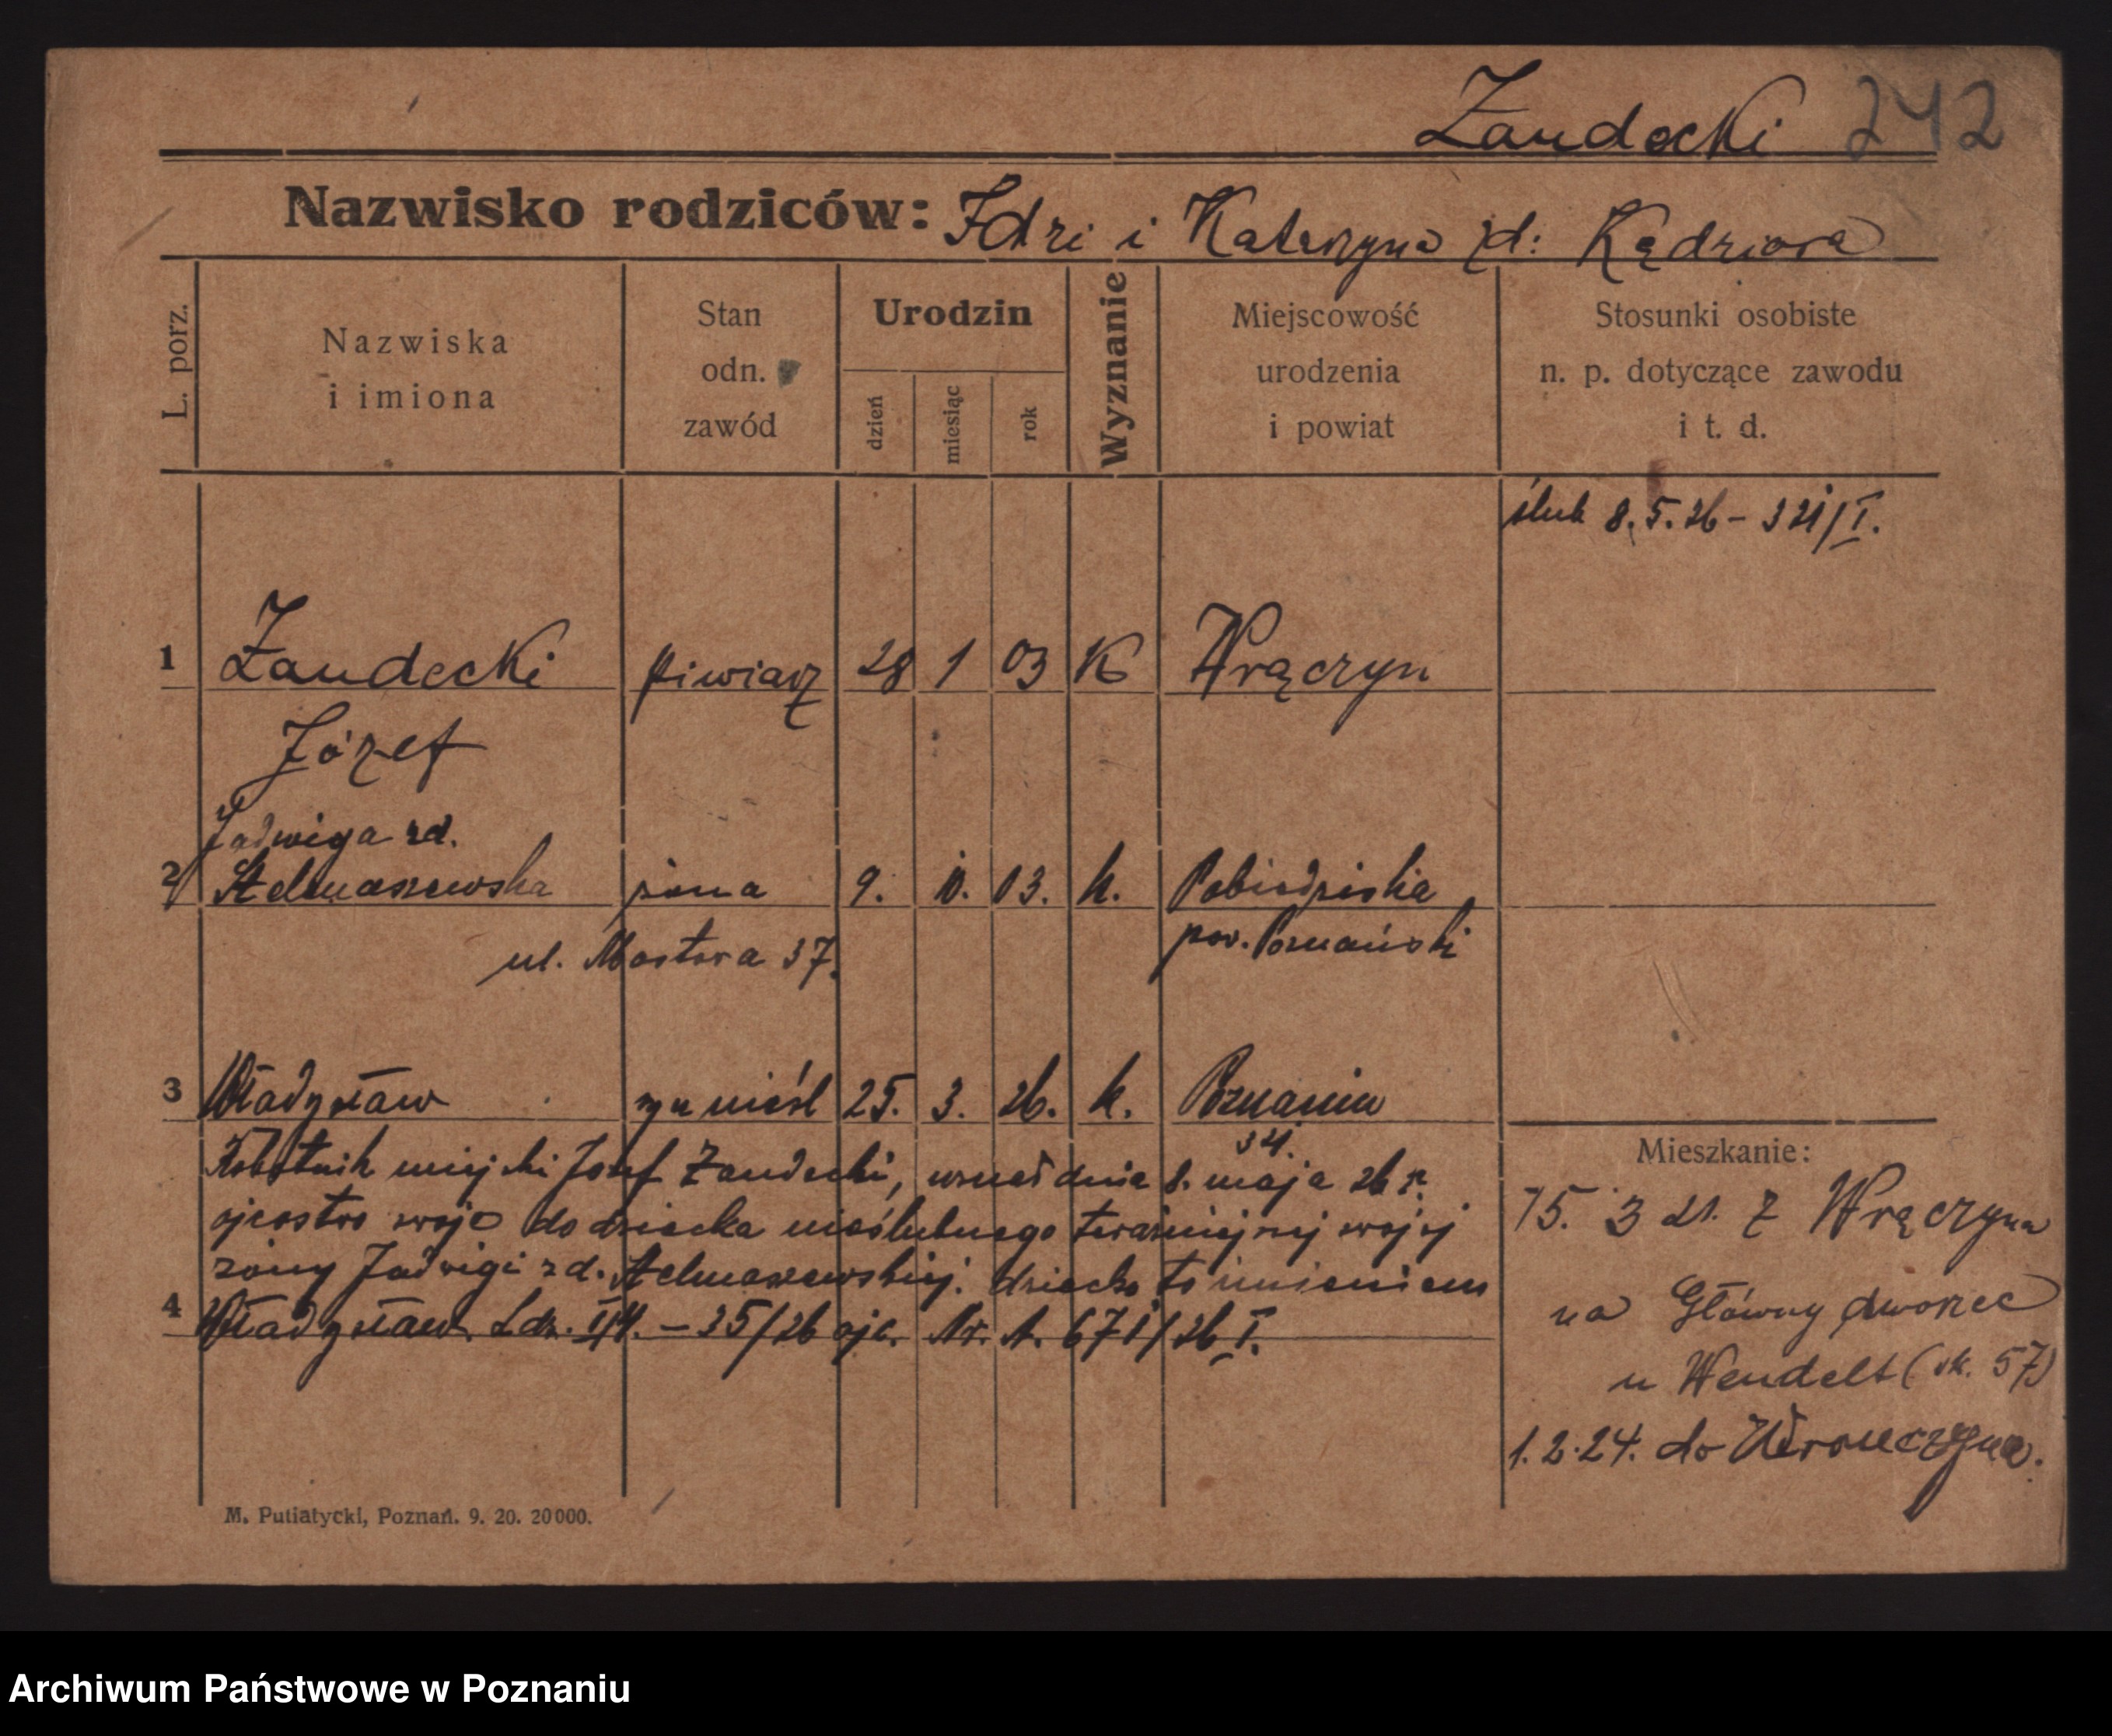 Żandecki 242
Nazwisko rodziców: Idzi i Katarzyna zd: Kędziora
L. porz.
Nazwiska
i imiona
Stan
odn.
zawód
Urodzin
dzień
miesiąc
rok
Wyznanie
Miejscowość
urodzenia
i powiat
Stosunki osobiste
n. p. dotyczące zawodu
i t. d.
ślub 8.5.26 – 321/I.
1 Żandecki piwiarz 28 1 03 K Wrączyn
Józef
Jadwiga zd.
2 Stelmaszewska żona 9. 10. 03. k. Pobiedziska
pow. Poznański
ul. Mostowa 37.
3 Władysław syn nieśl 25. 3. 26. k. Poznaniu
Robotnik miejski Józef Żandecki, uznał dnia 8. maja 26 r.
ojcostwo swoje do dziecka nieślubnego teraźniejszej swojej
żony Jadwigi zd. Stelmaszewskiej. dziecko to imieniem
4 Władysław. Ldz. – 35/26 ojc. Nr. A. 671/26 I.
Mieszkanie:
15. 3 21. z Wrączyna
na Główny dworzec
u Wendelt (sk. 57)
1.2.24. do Wronczyna.
M. Putiatycki, Poznań. 9. 20. 20000.
Archiwum Państwowe w Poznaniu